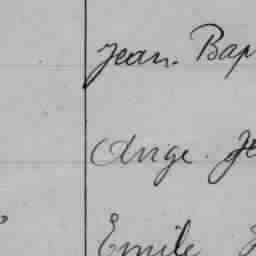 Jean. Bap
Ange. Je
Emile